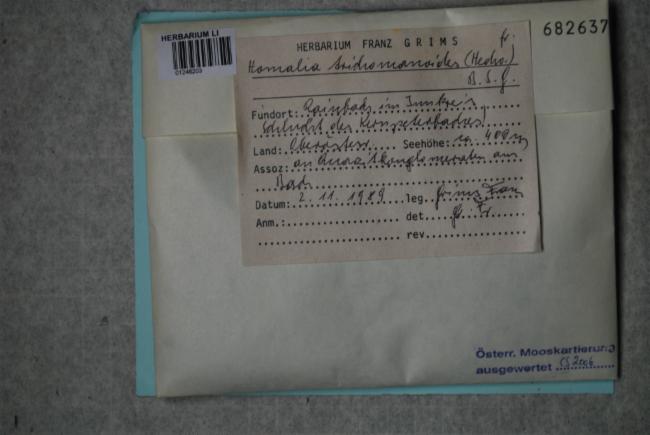 HERBARIUM LI
01246203
682637
HERBARIUM FRANZ GRIMS fr.
Homalia trichomanoides (Hedw.)
B.S.G.
Fundort: Rainbach im Innkreis
Land: Oberösterr. Seehöhe: ca 400 m
Assoz: an Quarzitkonglomeraten am
Bach
Datum: 2.11.1989 leg. Grims Franz
Anm.: det. Gr. Fr.
rev.
Österr. Mooskartierung
ausgewertet CS 2006